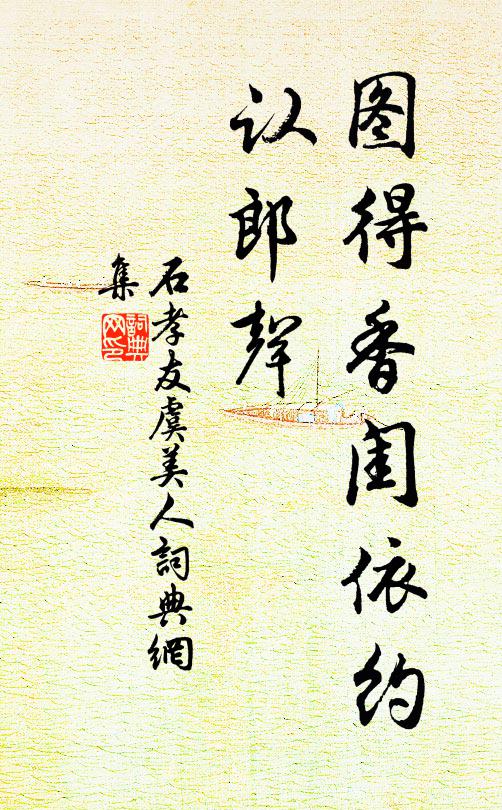 图得香闺依约
认郎声
石孝友虞美人詞典網
集
詞典
网印